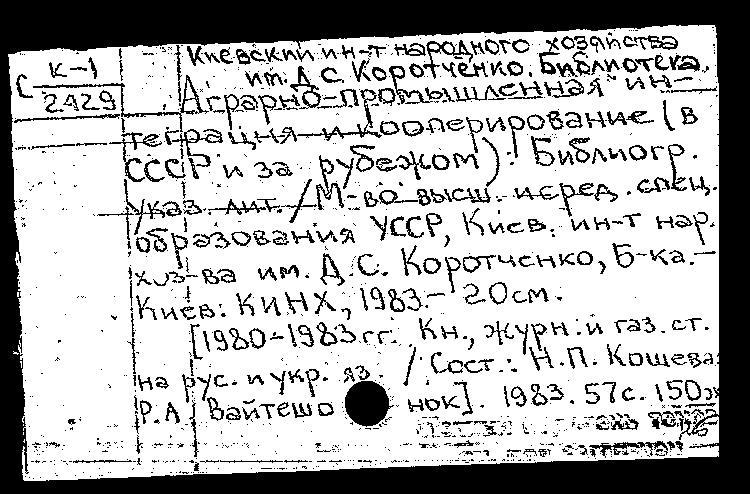 С К-1
2429
Киевский ин-т народного хозяйства
им. Д. С. Коротченко. Библиотека.
Аграрно-промышленная ин-
теграция и кооперирование (в
СССР и за рубежом): Библиогр.
указ. лит. / М-во высш. и сред. спец.
образования УССР, Киев. ин-т нар.
хоз-ва им. Д.С. Коротченко, Б-ка.-
Киев: КИНХ, 1983.- 20см.
[1980-1983гг. Кн., журн. и газ. ст.
на рус. и укр. яз. / Сост.: Н.П. Кошевая
Р.А. Вайтешонок]. 1983. 57с. 150э